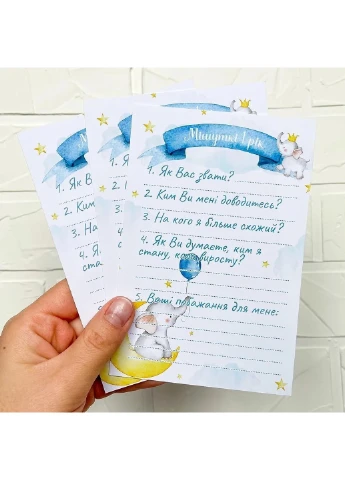 Мені рік
1. Як Вас звати?
2. Ким Ви мені доводитесь?
3. На кого я більше схожий?
4. Як Ви думаєте, ким я
стану, коли виросту?
5. Ваші побажання для мене:
1. Як В
2. Ким
3. На
4. Я
стан
1. Як
2. Ки
3. На
4. Я
стан